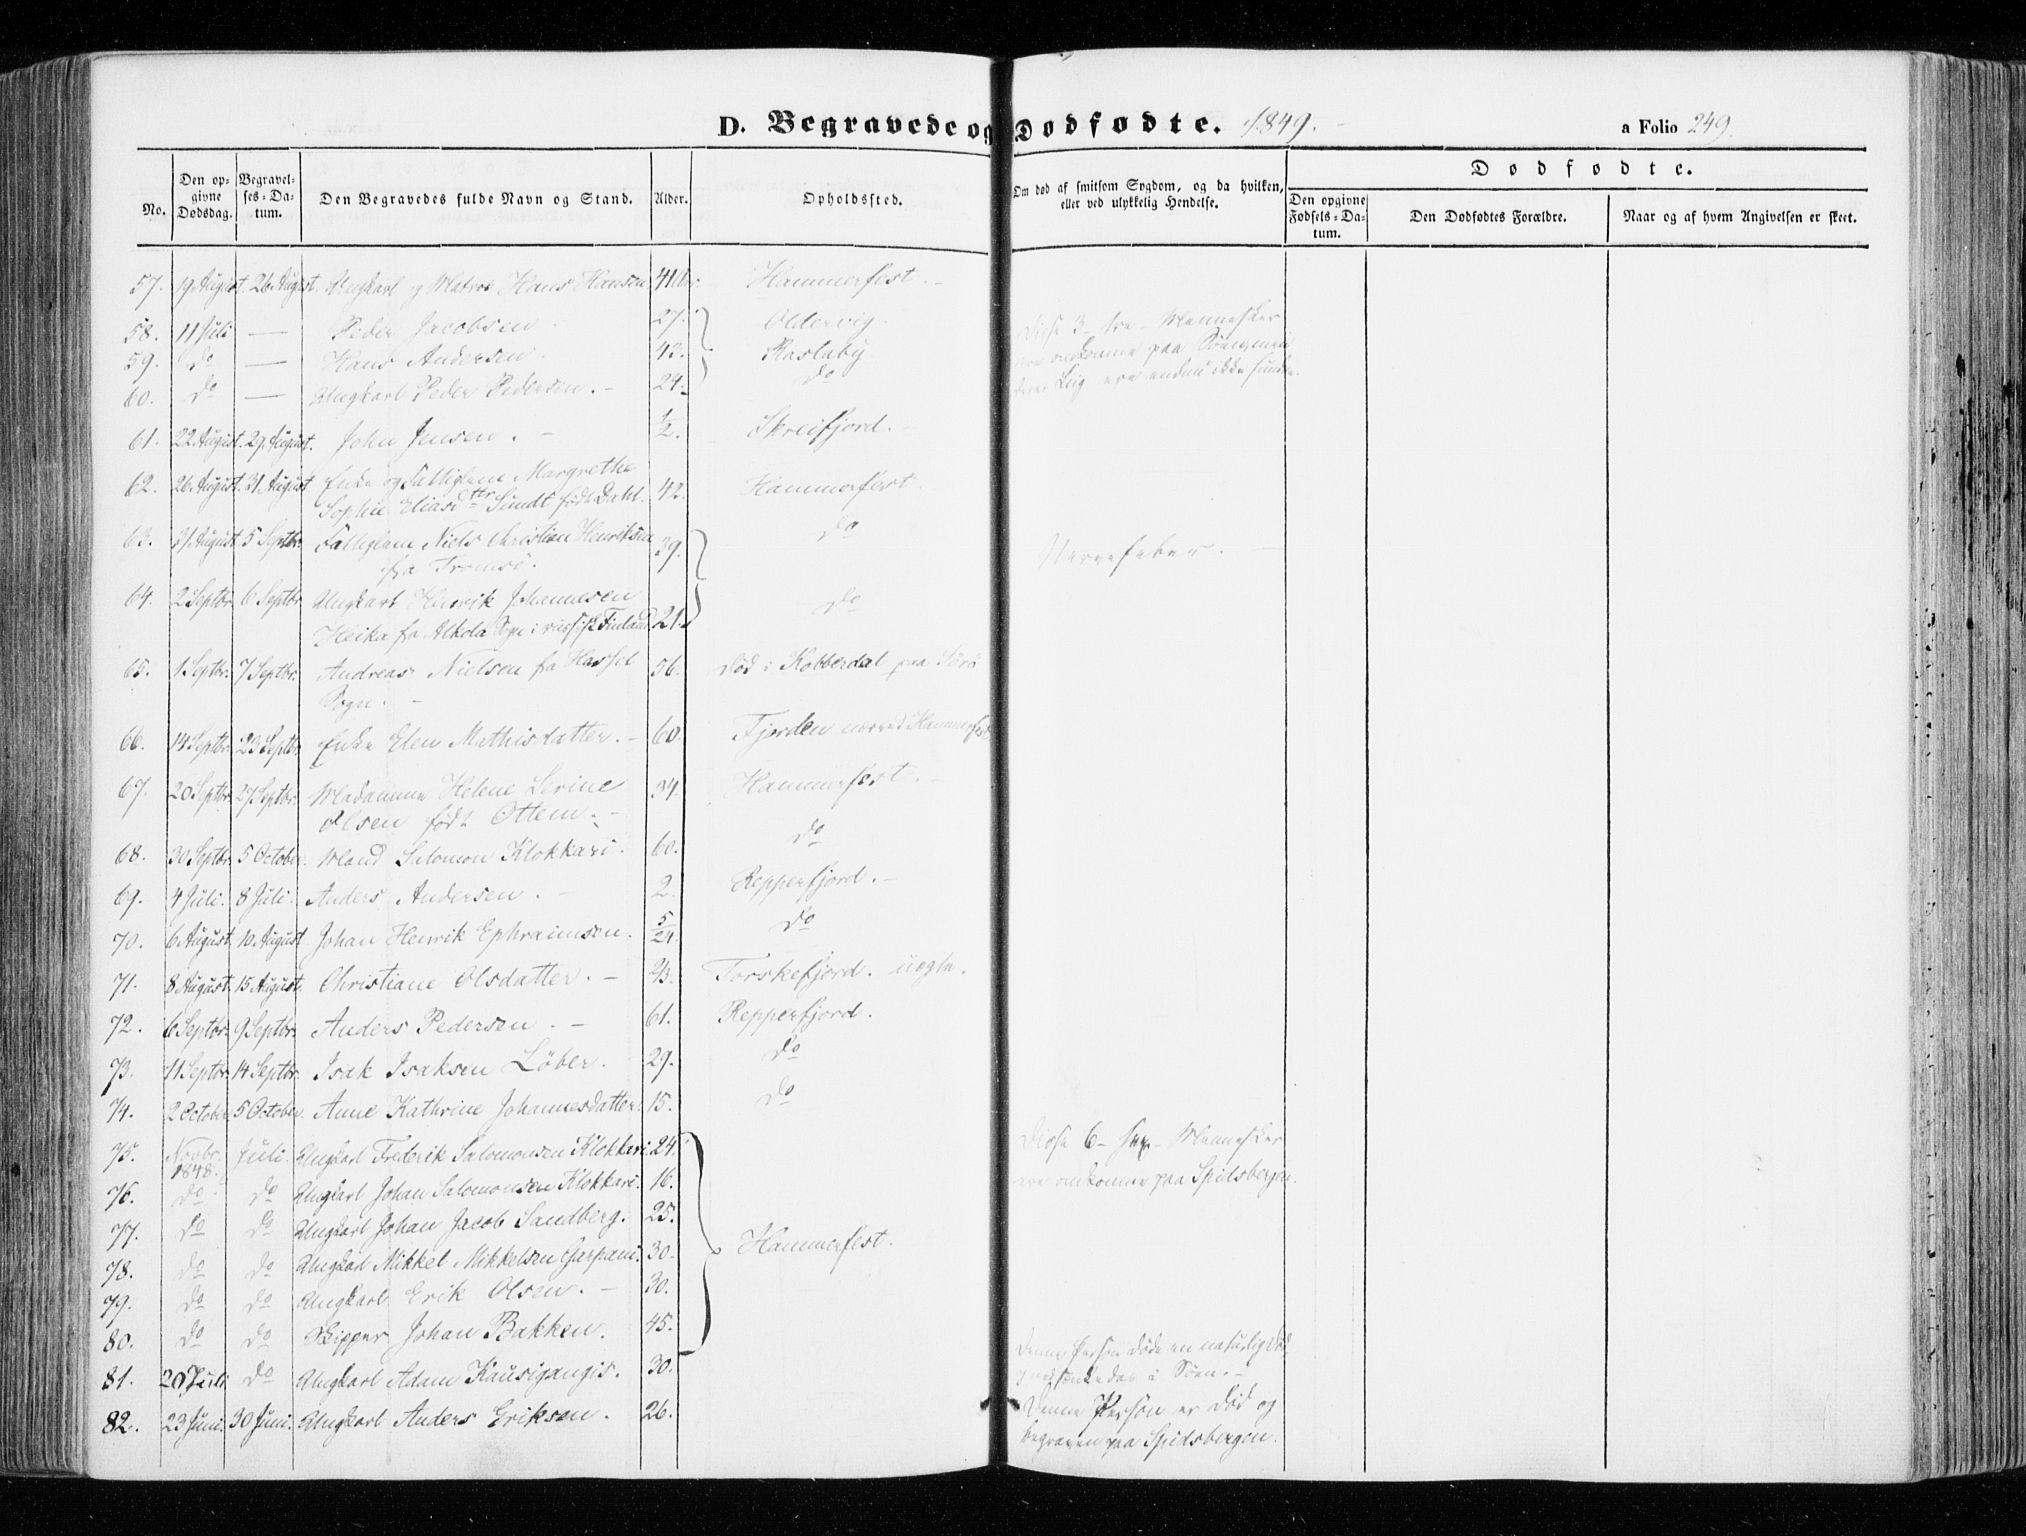 D. Begravede og Dødfødte. 1849. a Folio 249.
No. | Den opgivne Dødsdag. | Begravelses-Datum. | Den Begravedes fulde Navn og Stand. | Alder. | Opholdssted. | Om død af smitsom Sygdom, og da hvilken, eller ved ulykkelig Hendelse. | Dødfødte.
Den opgivne Fødsels-Datum. | Den Dødfødtes Forældre. | Naar og af hvem Angivelsen er skeet.
57. 19 August. 26 August. Ungkarl og Matros Hans Hansen 41 Aar. Hammerfest.
58. 11 Juli — Peder Jacobsen 27. Oldervig. Disse 3 – tre – Mennesker
59. do — Hans Andersen. 43. ere omkomne paa
60. do — Ungkarl Peder Pedersen. 24. do deres Liig ere endnu ikke funden.
61. 22 August. 29 August. John Jensen. ½. Skreifjord.
62. 26 August. 31 August Enke og Fattiglem Margrethe
Sophie Eliasdtter Sundt født Dahl. 42. Hammerfest.
63. 31 August 5 Septbr. Fattiglem Niels Christian Henriksen 39. do Nervefeber.
fra Tromsø.
64. 2 Septbr. 6 Septbr. Ungkarl Henrik Johannesen do
Heika fra Alkola Sogn i russisk Finland 21.
65. 1 Septbr. 7 Septbr. Andreas Nielsen fra Hassel 56. død i Kobberdal paa Sørø
Sogn.
66. 14 Septbr. 23 Septbr. Enke Elen Mathisdatter. 60. Fjorden ved Hammerfest
67. 20 Septbr. 27 Septbr. Madamme Helene Serine 34. Hammerfest.
Olsen født Ottem.
68. 30 Septbr. 5 October. Mand Salomon Klokkari. 60. do
69. 4 Juli. 8 Juli. Anders Andersen. 2. Repperfjord.
70. 6 August. 10 August Johan Henrik Ephraimsen. 5/24. do
71. 8 August. 15 August. Christiane Olsdatter. 2/3. Torskefjord. uægte.
72. 6 Septbr. 9 Septbr. Anders Pedersen. 61. Repperfjord.
73. 11 Septbr. 14 Septbr. Isak Isaksen Løber. 29. do
74. 2 October 5 October. Anne Kathrine Johannesdatter. 15. do
75. Novbr. 1848. Juli. Ungkarl Frederik Salomonsen Klokkari 24. Disse 6 – sex – Mennesker
76. do do Ungkarl Johan Salomonsen Klokkari. 16. ere omkomne paa Spidsbergen.
77. do do Ungkarl Johan Jacob Sandberg. 25.
78. do do Ungkarl Mikkel Mikkelsen 30. Hammerfest.
79. do do Ungkarl Erik Olsen. 30.
80. do do Skipper Johan Bakken. 45.
81. 20 Juli do Ungkarl Adam Kausigangis. 30. Denne Person døde en naturlig Død
og nedsænkedes i Søen.
82. 23 Juni. 30 Juni. Ungkarl Anders Eriksen. 26. Denne Person er død og
begraven paa Spidsbergen.